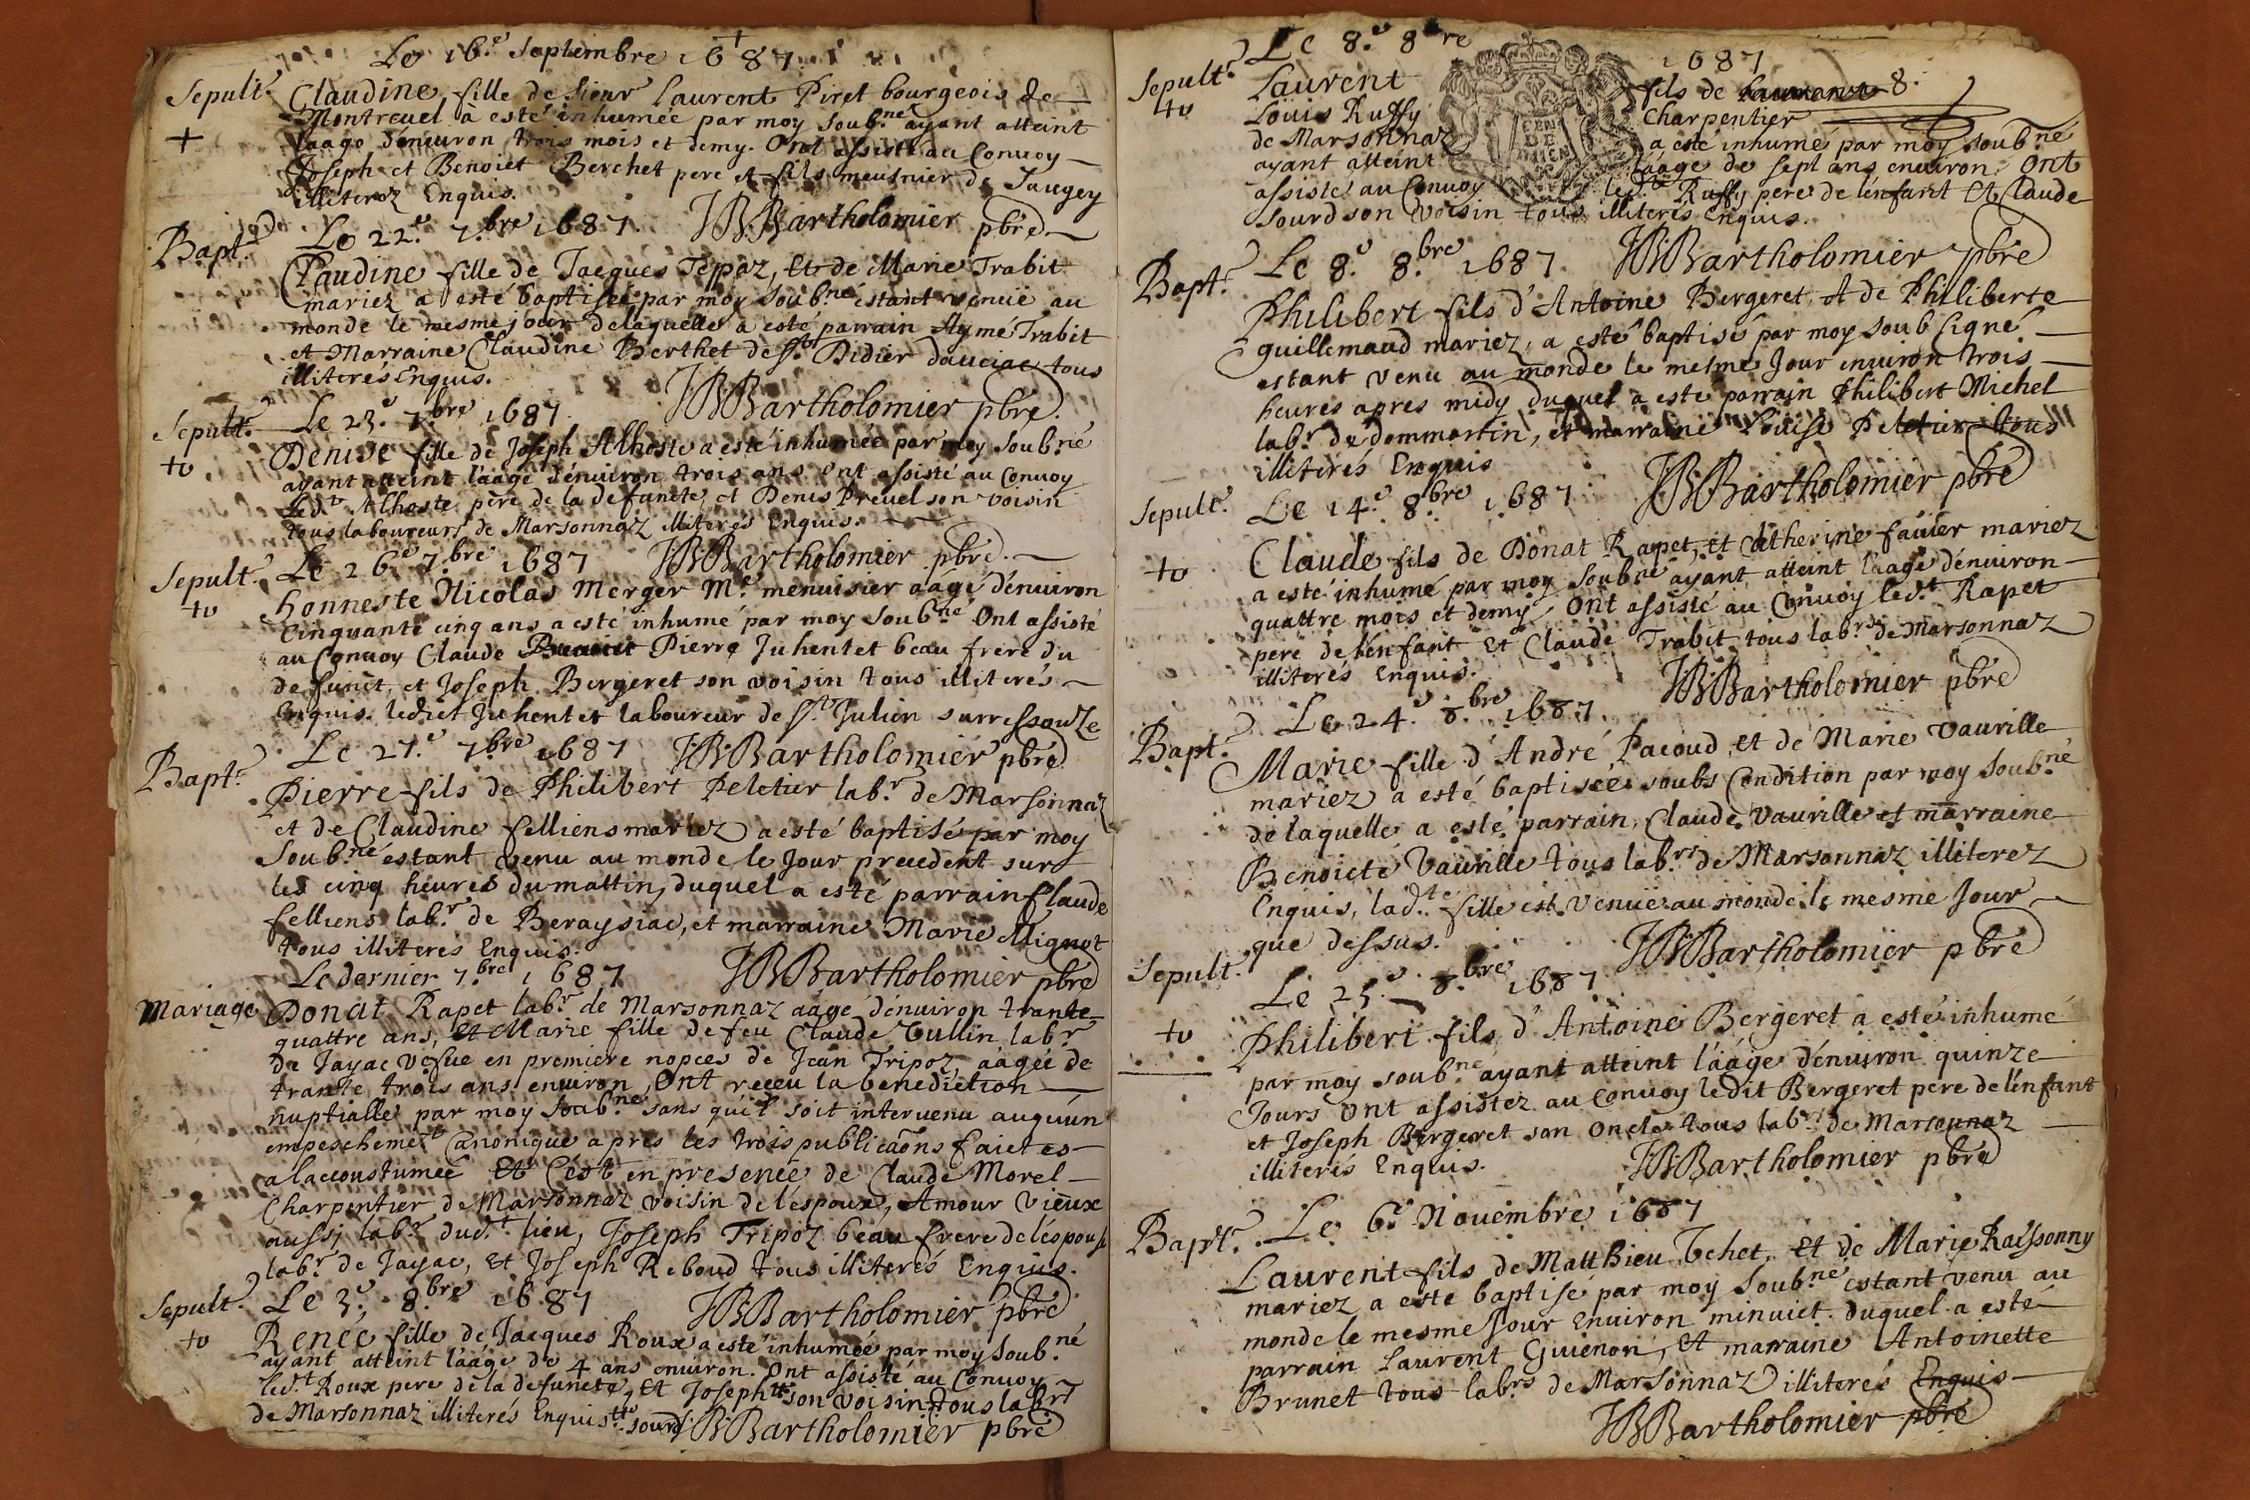 Le 16.e Septembre 1687
Sepult.e Claudine fille de Sieur Laurent Piret bourgeois de
Montreuel à esté inhumée par moy soub.né ayant atteint
l'aage d'enuiron trois mois et demy. Ont assisté au Conuoy
Joseph et Benoiet Berchet pere et fils meusnier de Jaugey
illiterez Enquis.
Bapt.e Le 22.e 7.bre 1687. JBBartholomier pbre
Claudine fille de Jacques Teppaz, Et de Marie Trabit
mariez a esté baptisée par moy soub.né estant venüe au
monde le mesme jour de laquelle a esté parrain Aymé Trabit
et Marraine Claudine Berthet de st Didier dauciac tous
illiterés Enquis.
Sepult.e Le 23.e 7.bre 1687. JBBartholomier pbre.
to Denise fille de Joseph Alhoste a esté inhumée par moy soub.né
ayant atteint l'aage d'enuiron trois ans ont assisté au Conuoy
Led.t Alhoste père de la defuncte, et Denis Preuel son voisin
tous laboureurs de Marsonnaz illiterés Enquis.
Sepult.e Le 26.e 7.bre 1687 JBBartholomier pbre.
to honneste Nicolas Merger M.e menuisier aagé d'enuiron
Cinquante cinq ans a esté inhumé par moy soub.né Ont assisté
au Conuoy Claude Pierre Juhentet beau frere du
defunct, et Joseph Bergeret son voisin tous illiterés
Enquis. ledict Juhentet laboureur de st Julien surressouze
Bapt.e Le 27.e 7.bre 1687 JBBartholomier pbre
Pierre fils de Philibert Peletier lab.r de Marsonnaz
et de Claudine felliens mariez a esté baptisé par moy
Soub.né estant venu au monde le Jour precedent sur
les cinq heures du mattin, duquel a esté parrain Claude
felliens lab.r de Beraysiac, et marraine Marie Mignot
tous illiterés Enquis.
Le dernier 7.bre 1687 JBBartholomier pbre
Mariage Donat Rapet lab.r de Marsonnaz aagé d'enuiron trante
quattre ans, Et Marie fille de feu Claude Tullin lab.r
de Jayac vefue en premiere nopces de Jean Tripoz aagée de
trante trois ans enuiron, Ont receu la benediction
nuptialle par moy Soub.né sans qu'il soit interuenu auquun
empeschemet Canonique apres les trois publicaons faictes
alaccoustumée Et C'est en presence de Claude Morel
Charpentier de Marsonnaz voisin de l'espoux, Amour Vieux
aussy lab.r dud.t lieu, Joseph Tripoz beau frere de léspouse
lab.r de Jayac, Et Joseph Reboud tous illiterés Enquis.
Sepult.e Le 3.e 8.bre 1687 JBBartholomier pbre
to Renée fille de Jacques Roux a esté inhumée par moy soub.né
ayant atteint l'aage de 4 ans enuiron. Ont assisté au Conuoy
led.t Roux pere de la defuncte, Et Joseph son voisin tous lab.rs
de Marsonnaz illiterés Enquis. sourd JBBartholomier pbre
Le 8.e 8bre 1687
Sepult.e Laurent fils de
to Loüis Ruffy Charpentier
de Marsonnaz a esté inhumé par moy soub.né
ayant atteint l'aage de sept ans enuiron. Ont
assisté au Conuoy led.t Ruffy pere de l'enfant Et Claude
Sourd son voisin tous illiterés Enquis.
Bapt.e Le 8.e 8.bre 1687. JBBartholomier pbre
Philibert fils d'Antoine Bergeret, et de Philiberte
guillemaud mariez, a esté baptisé par moy soubsigné
estant venu au monde le mesme Jour enuiron trois
heures apres midy duquel a esté parrain Philibert Michel
lab.r de dommartin, et marraine Louise Peletier tous
illiterés Enquis
Sepult.e Le 14.e 8.bre 1687 JBBartholomier pbre
to Claude fils de Donat Rapet, et Catherine fauier mariez
a esté inhumé par moy soubné ayant atteint l'aage d'enuiron
quattre mois et demy, Ont assisté au Conuoy led.t Rapet
pere de l'enfant Et Claude Trabit tous lab.rs de Marsonnaz
illiterés Enquis. JBBartholomier pbre
Le 24.e 8.bre 1687.
Bapt.e Marie fille d'André Pacoud, et de Marie Vaurille
mariez a esté baptisée soubs Condition par moy soub.né
de laquelle a esté parrain, Claude Vaurille et marraine
Benoicte Vaurille tous lab.rs de Marsonnaz illiterez
Enquis, lad.te fille est venüe au monde le mesme Jour
que dessus. JBBartholomier pbre
Sepult.e Le 25.e 8.bre 1687
to Philibert fils d'Antoine Bergeret a esté inhumé
par moy soub.né ayant atteint l'aage d'enuiron quinze
Jours Ont assistez au Conuoy ledit Bergeret pere de l'enfant
et Joseph Bergeret son oncle tous lab.rs de Marsonnaz
illiterés Enquis. JBBartholomier pbre
Le 6.e Nouembre 1687
Bapt.e Laurent fils de Matthieu Tehet, Et de Marie Raissonny
mariez a esté baptisé par moy soub.né estant venu au
monde le mesme Jour Enuiron minuict. duquel a esté
parrain Laurent Guienon, Et marraine Antoinette
Brunet tous lab.rs de Marsonnaz illiterés Enquis
JBBartholomier pbre